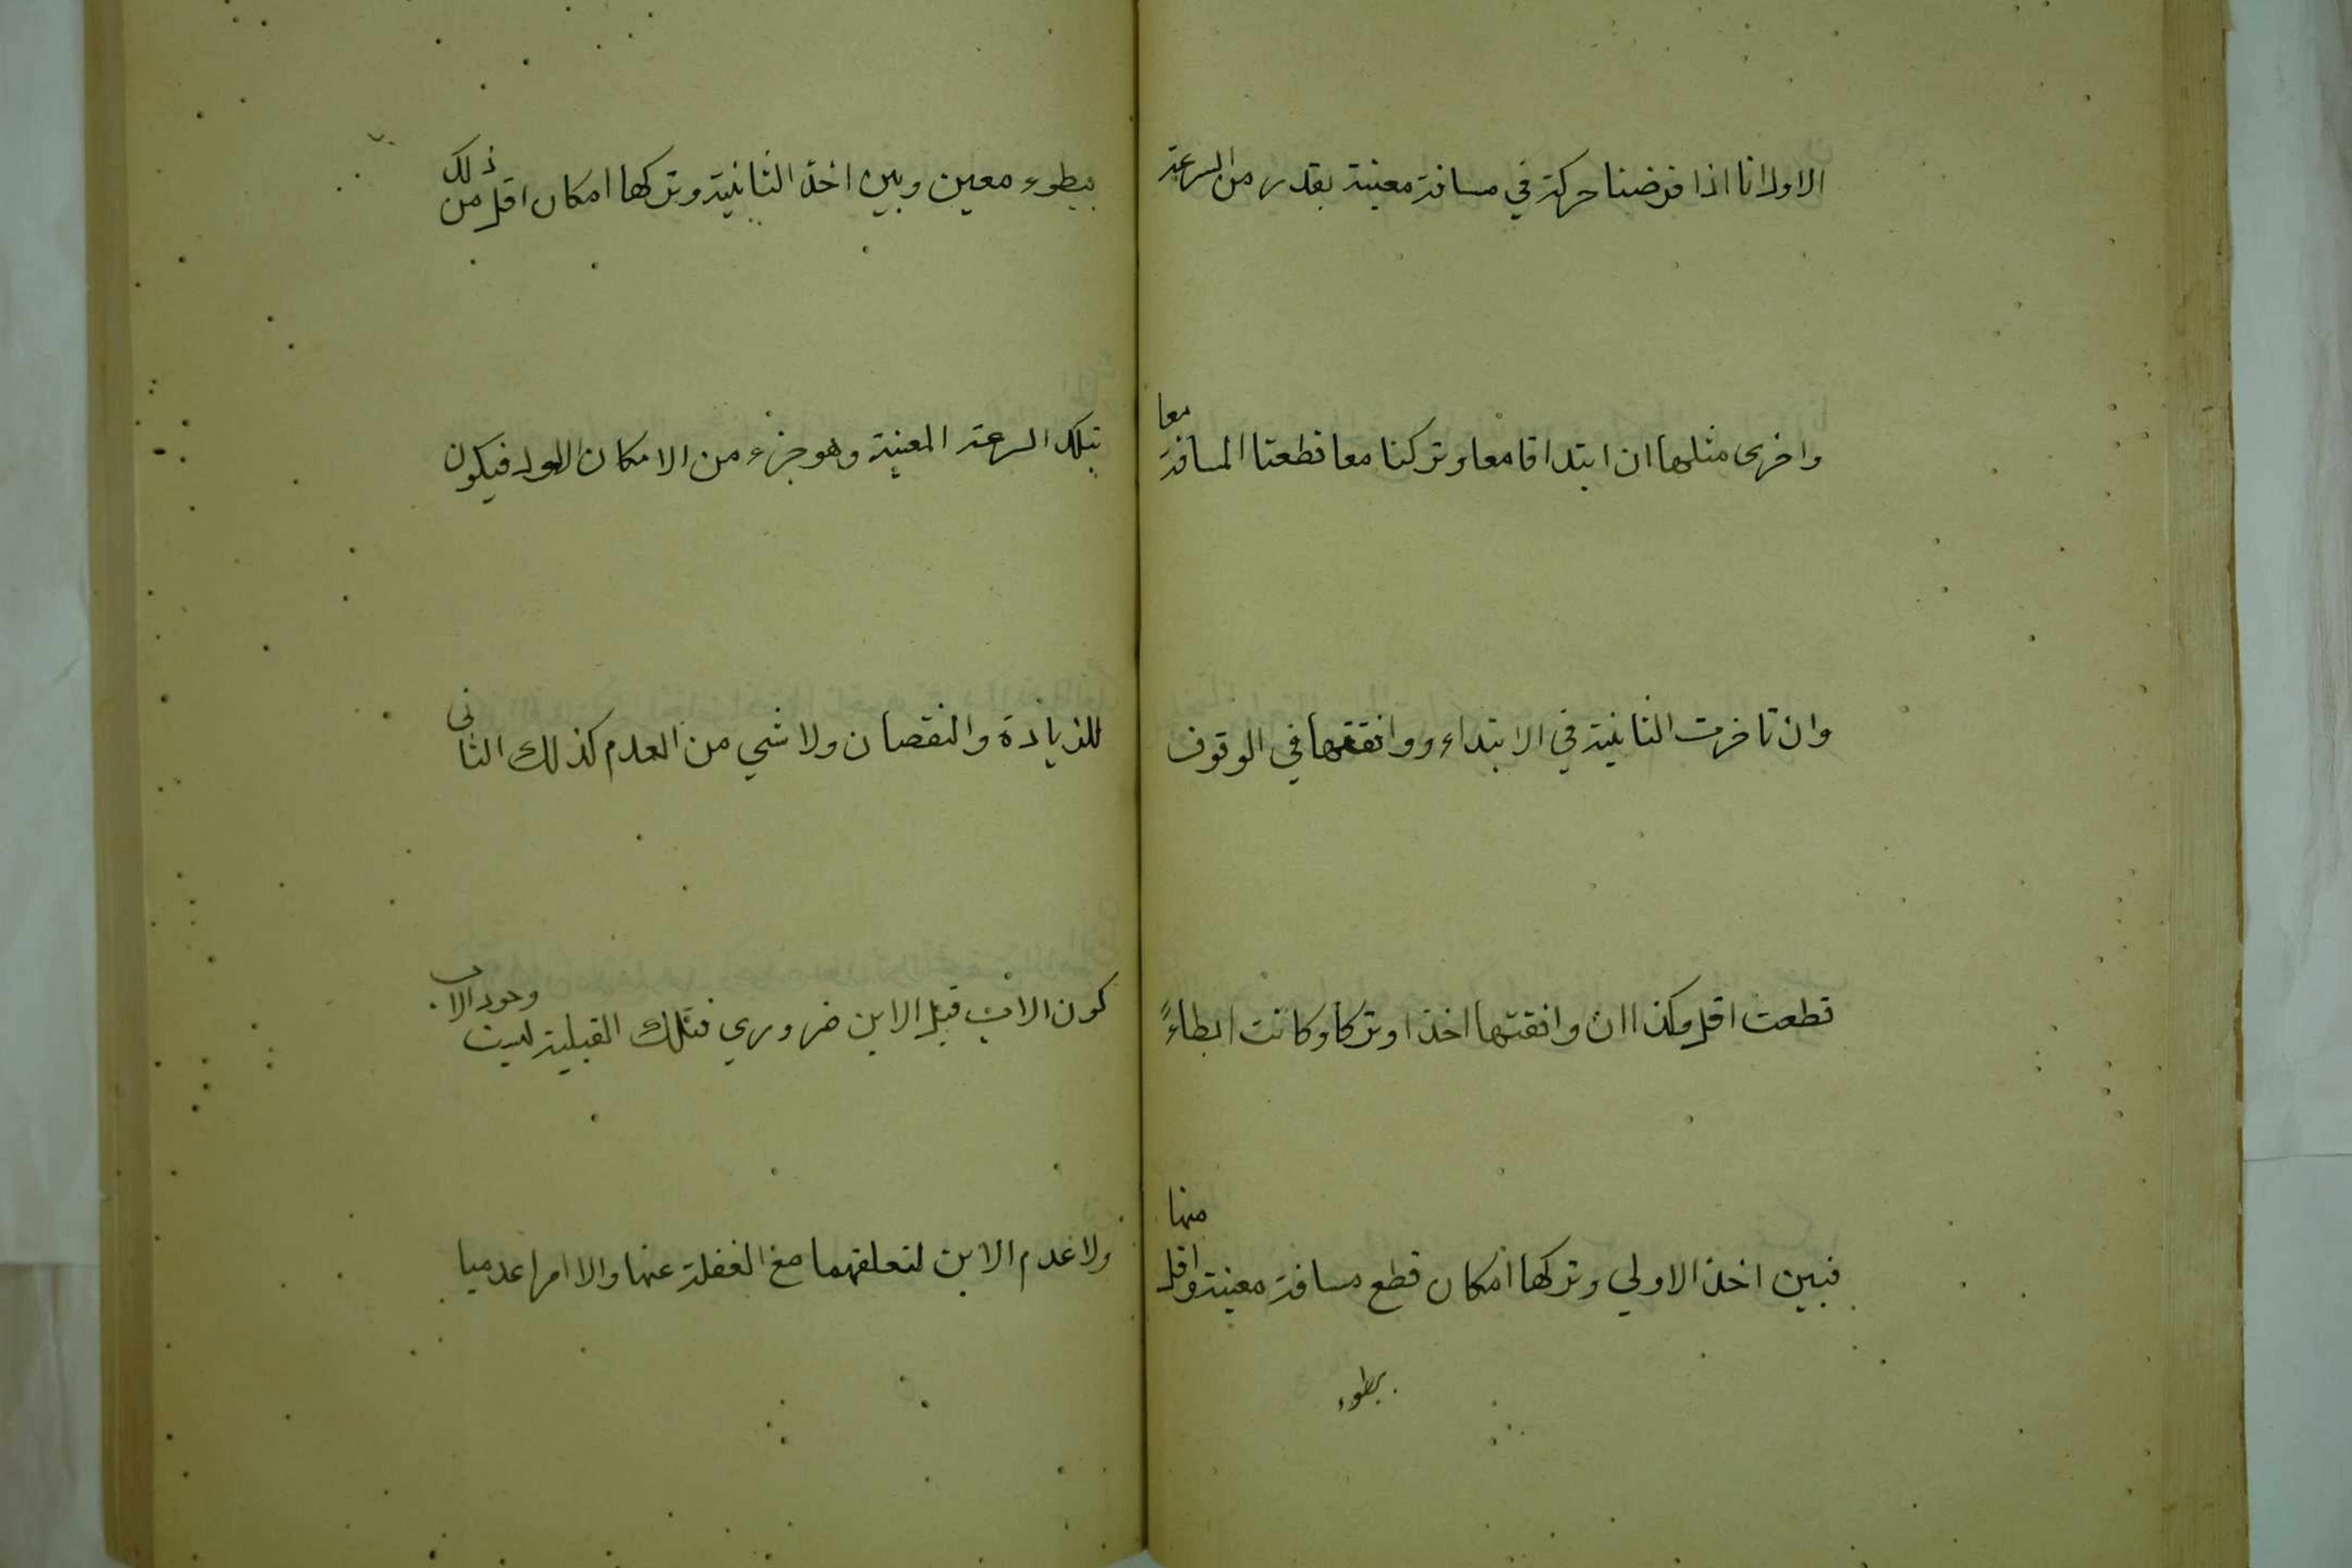 الاول انا اذا فرضنا حركة في مسافة معينة بقدر من السرعة
واخرى مثلها ان ابتداتا معا وتركنا معا قطعتا المسافة معا
وان تاخرت الثانية في الابتداء ووافقتها في الوقوف
قطعت اقل وكذا ان وافقتها اخذا وتركا وكانت ابطاءً
فبين اخذ الاولي وتركها امكان قطع مسافة معينة واقل منها
بطوء
ببطوء معين وبين اخذ الثانية وتركها امكان اقل من ذلك
بتلك السرعة المعينة وهو جزء من الامكان الاول فيكون
للزيادة والنقصان ولا شي من العدم كذلك الثانى
كون الاب قبل الابن ضروري فتلك القبلية ليست وجود الاب
ولا عدم الابن لتعلقهما مع الغفلة عنها والا امرا عدميا